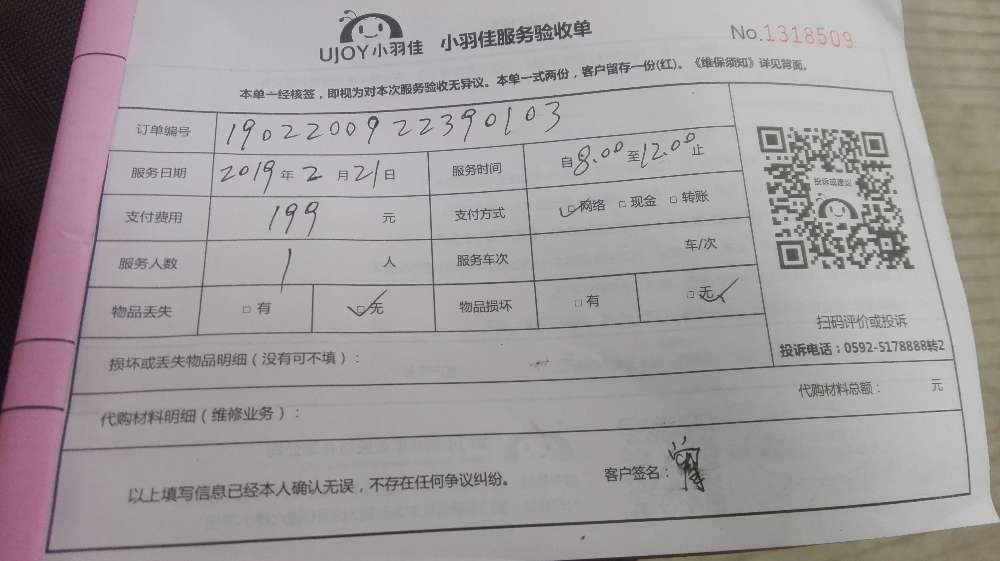 UJOY小羽佳 小羽佳服务验收单 No.1318509
本单一经核签，即视为对本次服务验收无异议。本单一式两份，客户留存一份(红)。《维保须知》详见背面。
订单编号 1902200922390103
服务日期 2019年2月21日 服务时间 自8.00至12.00止
支付费用 199 元 支付方式 ☑网络 □现金 □转账
服务人数 1 人 服务车次 车/次
物品丢失 □有 ☑无 物品损坏 □有 ☑无
投诉或建议
扫码评价或投诉
投诉电话：0592-5178888转2
损坏或丢失物品明细（没有可不填）：
代购材料明细（维修业务）： 代购材料总额： 元
以上填写信息已经本人确认无误，不存在任何争议纠纷。 客户签名：